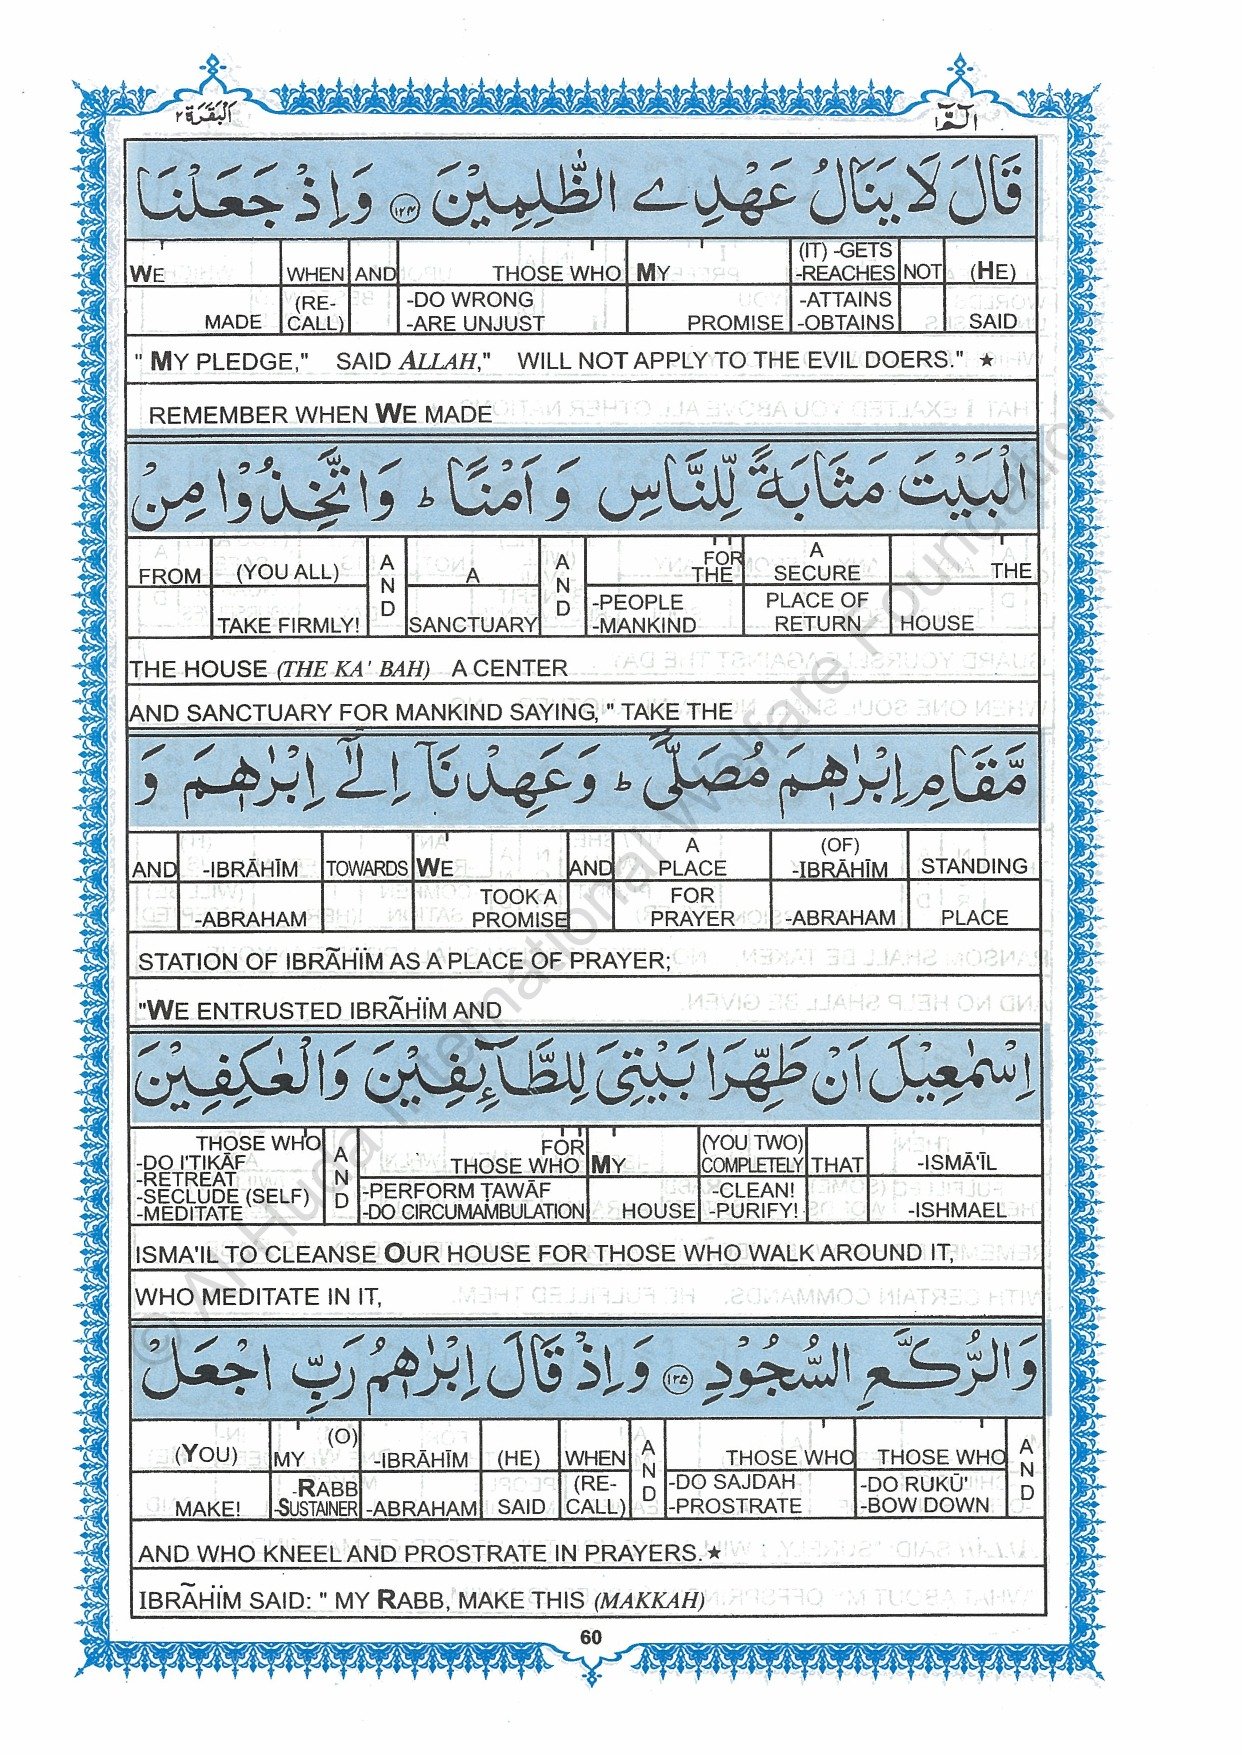 الٓمّٓ ١
اَلْبَقَرَة ٢
قَالَ لَا يَنَالُ عَهْدِے الظّٰلِمِيْنَ ١٢٤ وَاِذْ جَعَلْنَا
WE WHEN AND THOSE WHO MY (IT) -GETS -REACHES NOT (HE)
MADE (RE-CALL) -DO WRONG -ARE UNJUST PROMISE -ATTAINS -OBTAINS SAID
" MY PLEDGE," SAID ALLAH," WILL NOT APPLY TO THE EVIL DOERS." ★
REMEMBER WHEN WE MADE
الْبَيْتَ مَثَابَةً لِّلنَّاسِ وَ اَمْنًا ط وَاتَّخِذُوْا مِنْ
FROM (YOU ALL) AND A AND FOR THE A SECURE THE
TAKE FIRMLY! SANCTUARY -PEOPLE -MANKIND PLACE OF RETURN HOUSE
THE HOUSE (THE KA' BAH) A CENTER
AND SANCTUARY FOR MANKIND SAYING, " TAKE THE
مَّقَامِ اِبْرٰهٖمَ مُصَلًّى ط وَعَهِدْنَآ اِلٰٓى اِبْرٰهٖمَ وَ
AND -IBRĀHĪM TOWARDS WE AND A PLACE (OF) -IBRĀHĪM STANDING
-ABRAHAM TOOK A PROMISE FOR PRAYER -ABRAHAM PLACE
STATION OF IBRÃHÏM AS A PLACE OF PRAYER;
"WE ENTRUSTED IBRÃHÏM AND
اِسْمٰعِيْلَ اَنْ طَهِّرَا بَيْتِيَ لِلطَّآئِفِيْنَ وَالْعٰكِفِيْنَ
THOSE WHO AND FOR THOSE WHO MY (YOU TWO) COMPLETELY THAT -ISMĀ'ĪL
-DO I'TIKĀF -RETREAT -SECLUDE (SELF) -MEDITATE -PERFORM ṬAWĀF -DO CIRCUMAMBULATION HOUSE -CLEAN! -PURIFY! -ISHMAEL
ISMA'IL TO CLEANSE OUR HOUSE FOR THOSE WHO WALK AROUND IT,
WHO MEDITATE IN IT,
وَالرُّكَّعِ السُّجُوْدِ ١٢٥ وَاِذْ قَالَ اِبْرٰهٖمُ رَبِّ اجْعَلْ
(YOU) MY (O) -IBRĀHĪM (HE) WHEN AND THOSE WHO THOSE WHO AND
MAKE! -RABB -SUSTAINER -ABRAHAM SAID (RE-CALL) -DO SAJDAH -PROSTRATE -DO RUKŪ' -BOW DOWN
AND WHO KNEEL AND PROSTRATE IN PRAYERS.★
IBRÃHÏM SAID: " MY RABB, MAKE THIS (MAKKAH)
60
© Al-Huda International Welfare Foundation